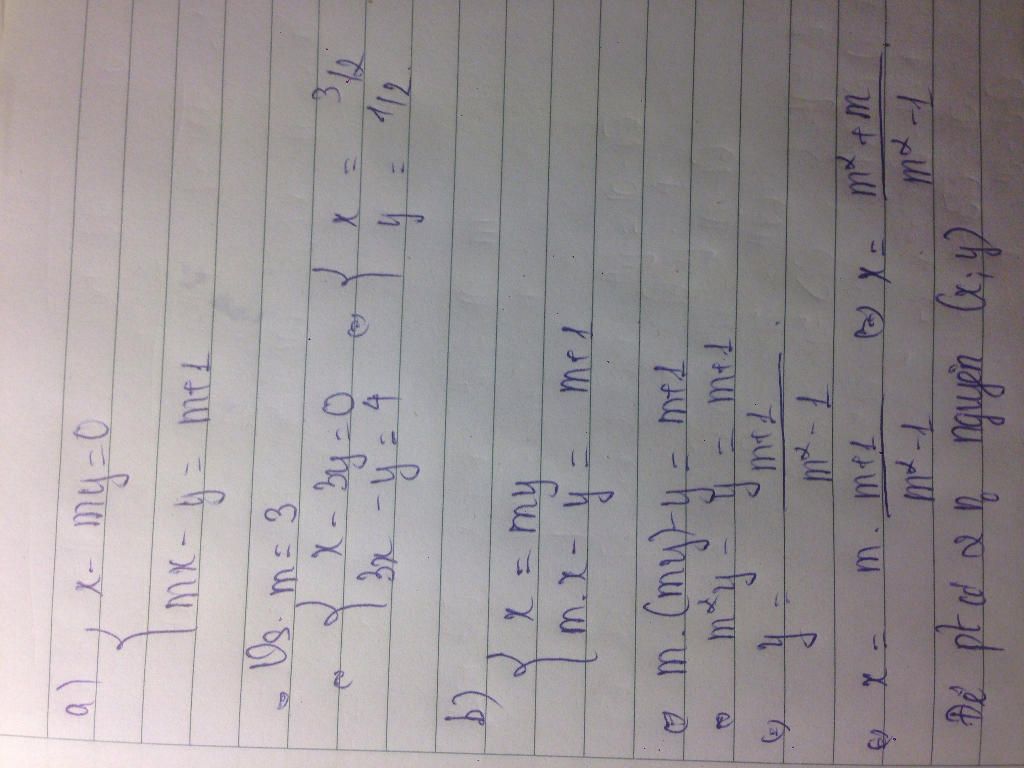 a) { x - my = 0
mx - y = m+1
Vs. m = 3
{ x - 3y = 0 (=) { x = 3/2
3x - y = 4 y = 1/2
b) { x = my
m.x - y = m+1
(=) m.(my) - y = m+1
m²y - y = m+1
(=) y = m+1 / m² - 1
(=) x = m. m+1 / m² - 1 (=) x = m² + m / m² - 1
Để pt có 2 n nguyện (x; y)